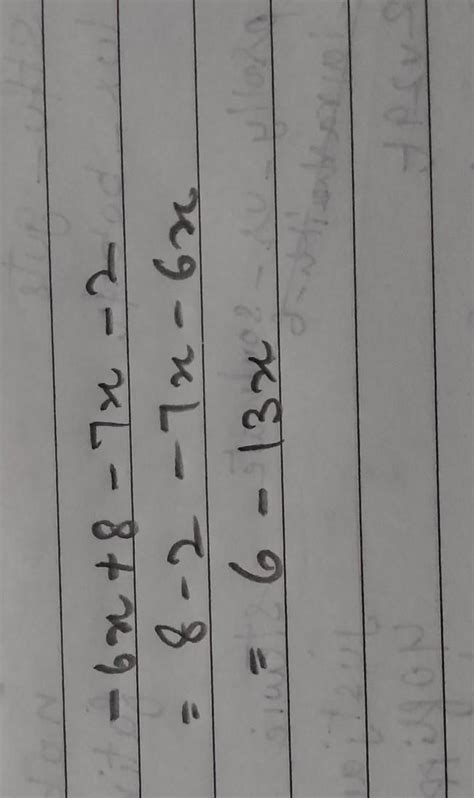 -6x+8-7x-2
= 8-2-7x-6x
= 6-13x